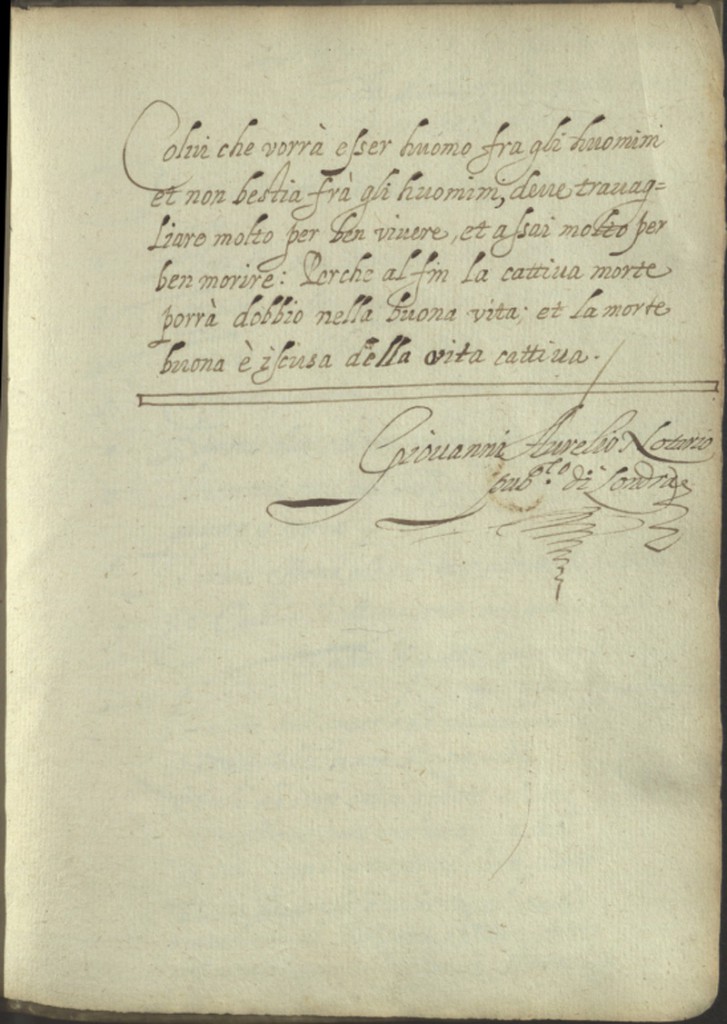 Colui che vorrà esser huomo fra gli huomini
et non bestia frà gli huomini, deve travag=
liare molto per ben vivere, et assai molto per
ben morire: Perche al fin la cattiva morte
porrà dobbio nella buona vita; et la morte
buona è iscusa della vita cattiva.
Giovanni Aurelio Notario
pub.co di Londra